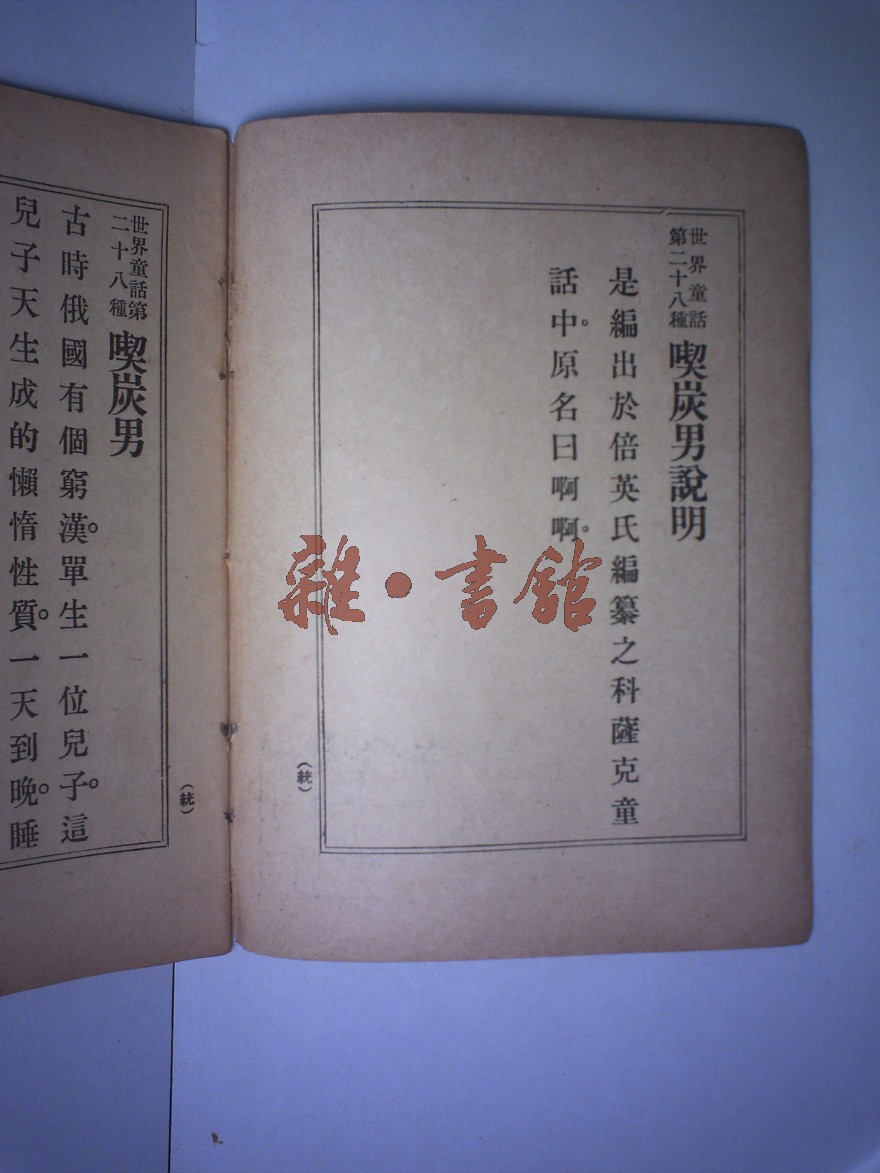 世界童話
第二十八種
喫炭男說明
是編出於倍英氏編纂之科薩克童
話中。原名曰啊啊。
(統)
世界童話第
二十八種
喫炭男
古時俄國有個窮漢。單生一位兒子。這
兒子天生成的懶惰性質。一天到晚。睡
(統)
雜·書館